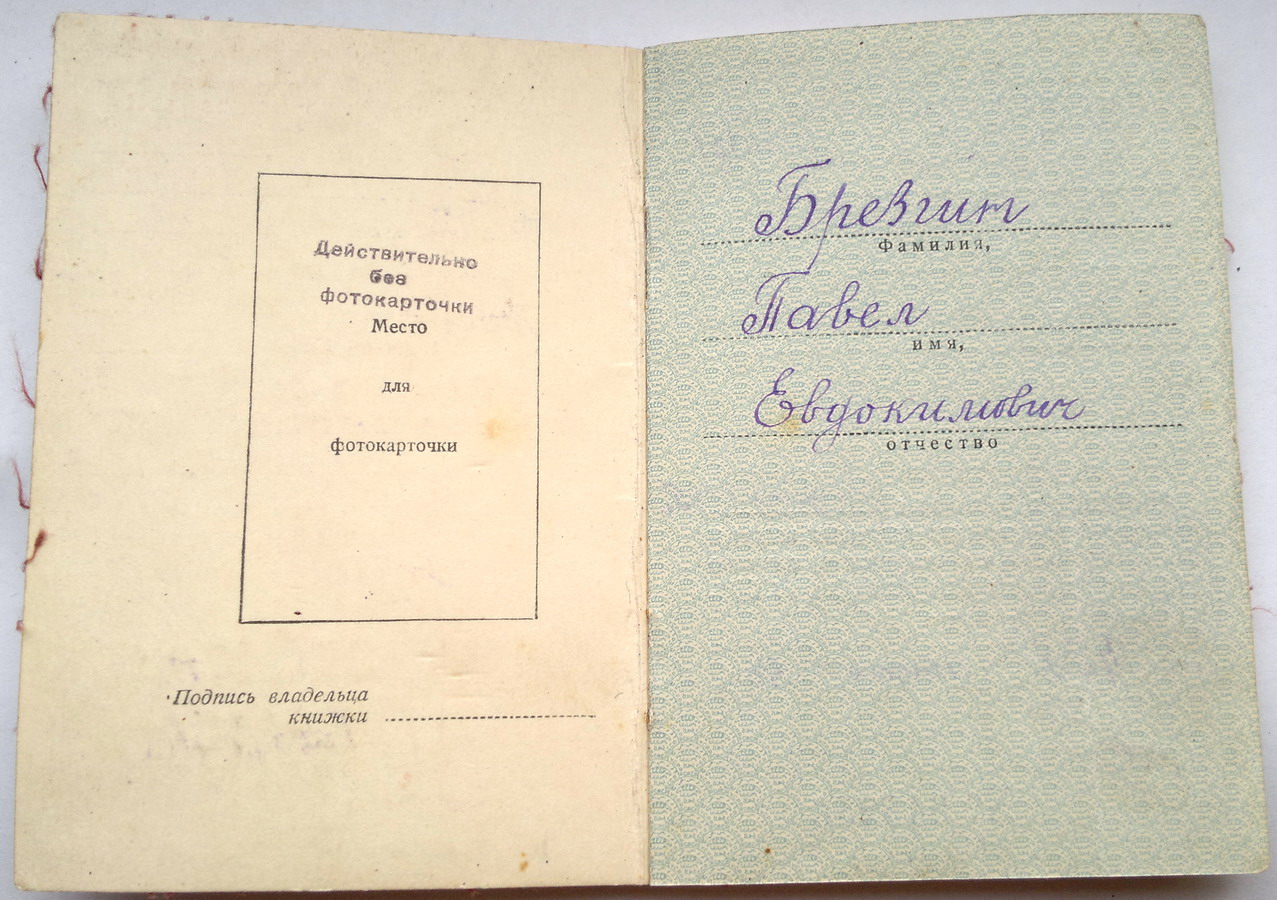 Действительно
без
фотокарточки
Место
для
фотокарточки
Подпись владельца
книжки
Бревгин
Фамилия,
Павел
имя,
Евдокимович
отчество